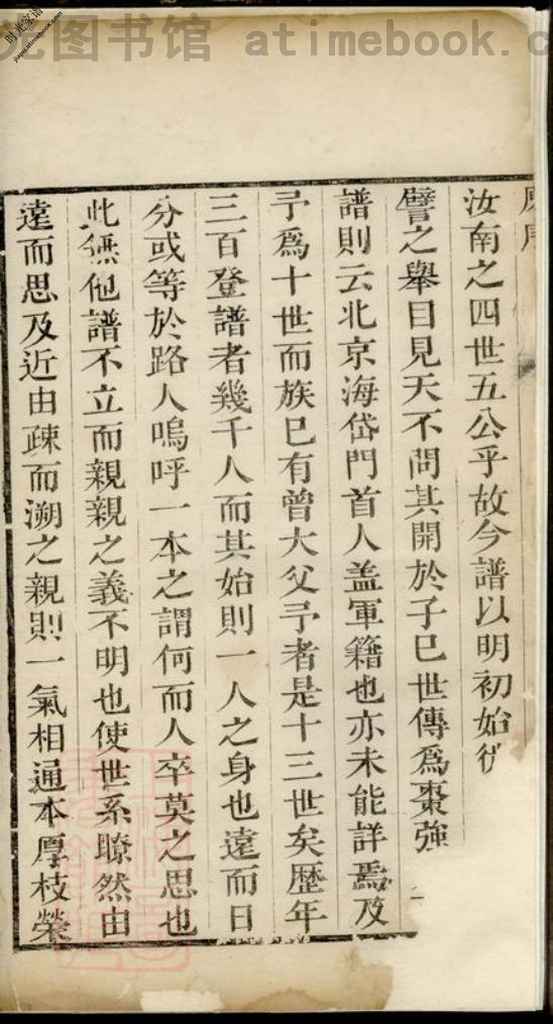 光图书馆 atimebook.c
时光家谱
汝南之四世五公乎故今譜以明初始
譬之舉目見天不問其開於子巳世傳爲棗強
譜則云北京海岱門首人盖軍籍也亦未能詳焉及
予爲十世而族巳有曾大父予者是十三世矣歷年
三百登譜者幾千人而其始則一人之身也遠而日
分或等於路人嗚呼一本之謂何而人卒莫之思也
此無他譜不立而親親之義不明也使世系瞭然由
遠而思及近由疎而溯之親則一氣相通本厚枝榮